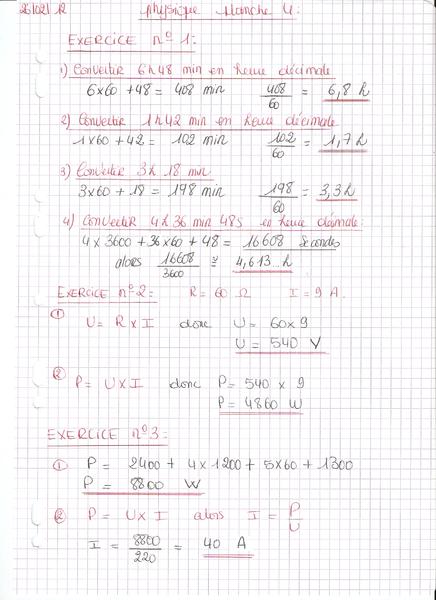 26/02/12 Physique planche 4:
EXERCICE n° 1:
1) Convertir 6h48 min en heure décimale
6x60 + 48 = 408 min 408/60 = 6,8 h
2) Convertir 1h42 min en heure décimale
1x60 + 42 = 102 min 102/60 = 1,7 h
3) Convertir 3h 18 min
3x60 + 18 = 198 min 198/60 = 3,3 h
4) Convertir 4h 36 min 48s en heure décimale:
4 x 3600 + 36x60 + 48 = 16608 secondes
alors 16608/3600 ≅ 4,613.. h
EXERCICE n°2: R = 60 Ω I = 9 A.
① U = R x I donc U = 60x9
U = 540 V
② P = U x I donc P = 540 x 9
P = 4860 W
EXERCICE n°3:
① P = 2400 + 4x1200 + 5x60 + 1300
P = 8800 W
② P = U x I alors I = P/U
I = 8800/220 = 40 A